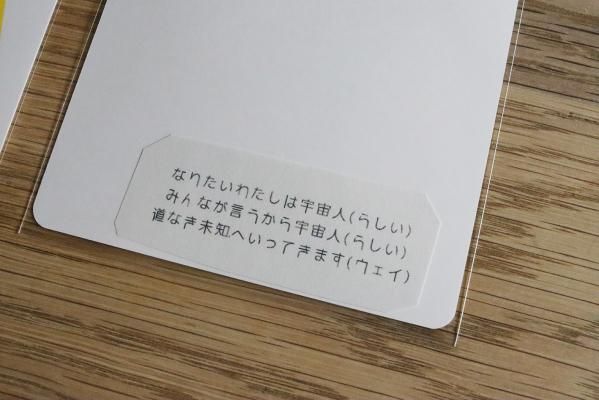 なりたいわたしは宇宙人(らしい)
みんなが言うから宇宙人(らしい)
道なき未知へいってきます(ウェイ)